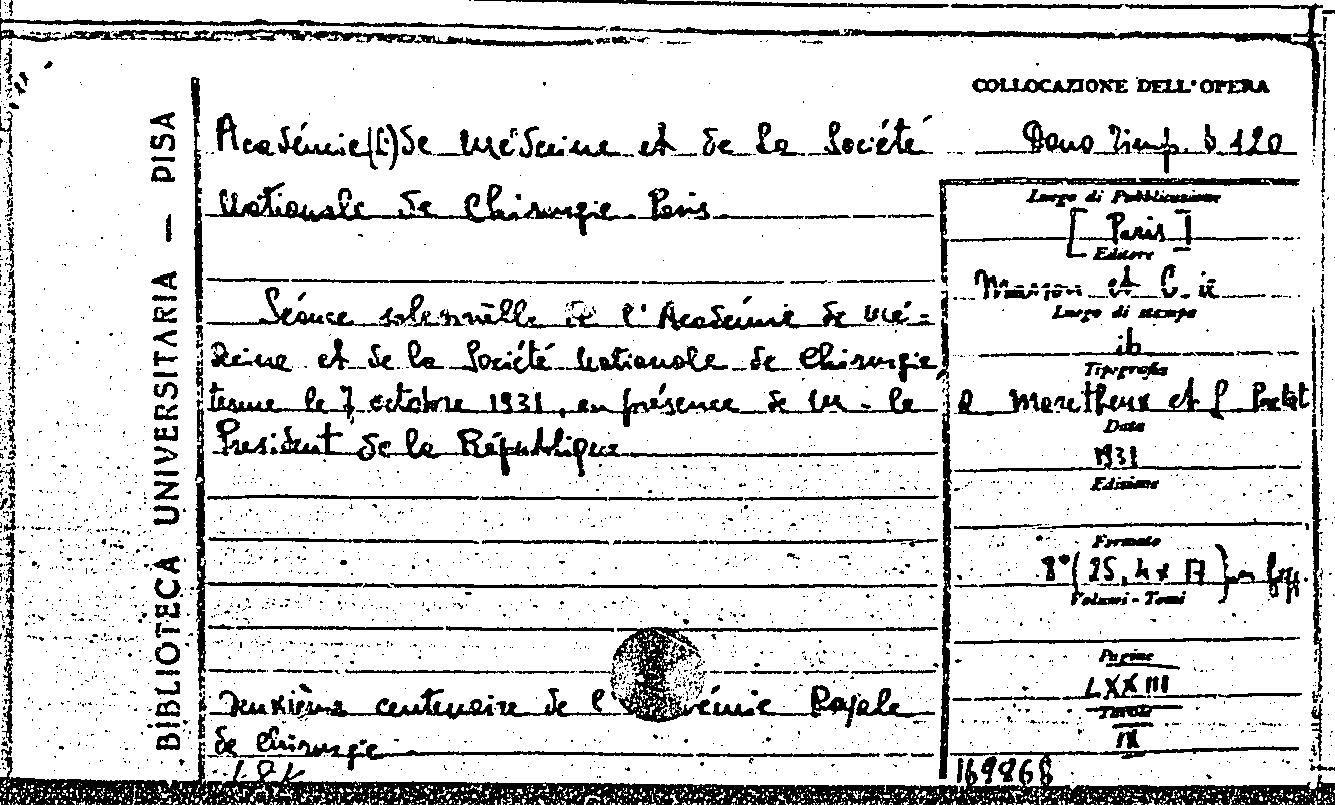 BIBLIOTECA UNIVERSITARIA — PISA
COLLOCAZIONE DELL'OPERA
Académie (L') de Médecine et de la Société
Nationale de Chirurgie Paris
Dono Ziemp. b 120
Luogo di Pubblicazione
[Paris]
Editore
Masson et C.ie
Luogo di stampa
ib
Tipografia
Maretheux et L Pactat
Data
1931
Edizione
Formato
8° (25,4 x 17) in
Volumi - Tomi
Pagine
LXXIII
Tavole
IX
169868
Séance solennelle de l'Académie de Mé-
decine et de la Société Nationale de Chirurgie,
tenue le 7 octobre 1931, en présence de M - le
President de la République
Deuxième centenaire de l' Royale
de Chirurgie